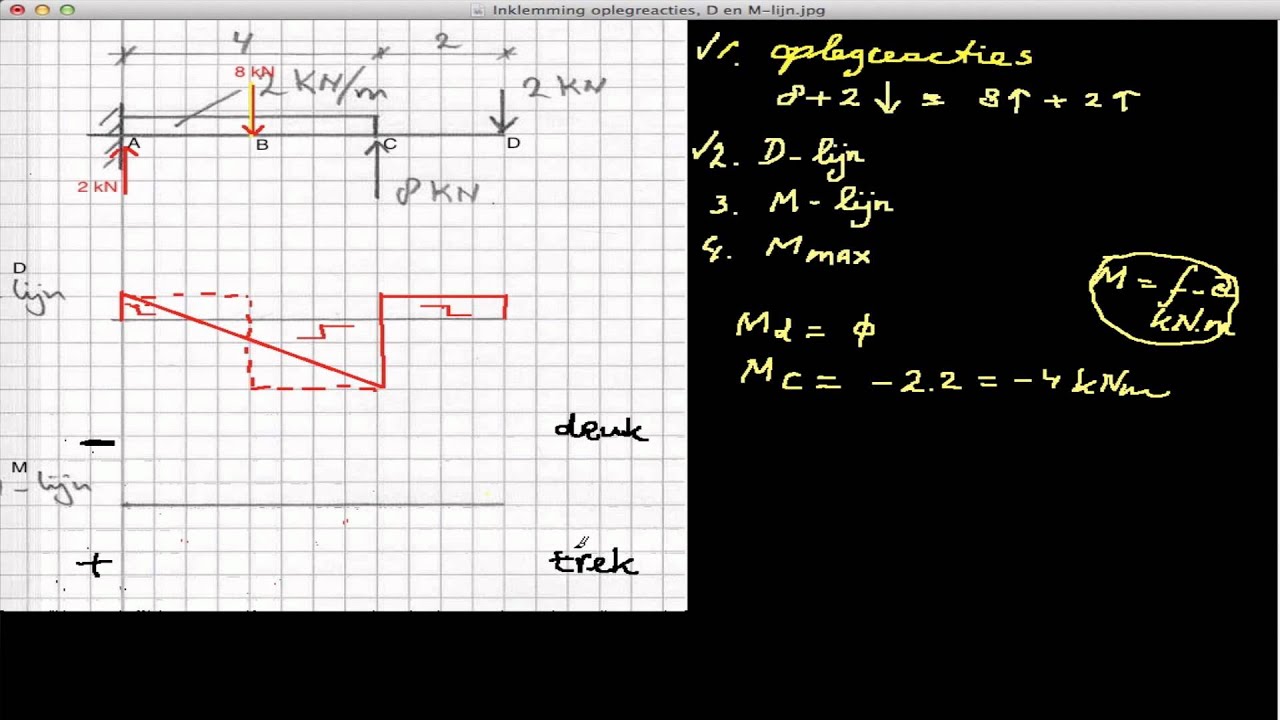 Inklemming oplegreacties, D en M-lijn.jpg
4
2
8 kN
2 KN/m
2 KN
A
B
C
D
2 kN
8 KN
D
lijn
M
- lijn
−
+
druk
trek
√1. oplegreacties
8+2 ↓ = 8↑ + 2↑
√2. D-lijn
3. M - lijn
4. M max
M = f - a
kN.m
Md = φ
Mc = -2.2 = -4 kNm